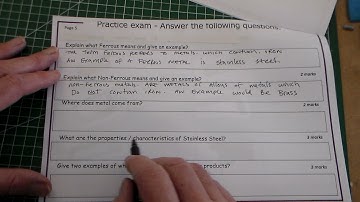 Page 5
Practice exam - Answer the following questions.
Explain what Ferrous means and give an example?
The term Ferrous refers to metals which contain iron
An Example of A Ferrous Metal is stainless steel.
Explain what Non-Ferrous means and give an example?
2 marks
Non-Ferrous metals are metals or Alloys of metals which
Do Not contain iron. An example would be Brass
Where does metal come from?
2 marks
What are the properties / characteristics of Stainless Steel?
3 marks
Give two examples of products?
2 marks